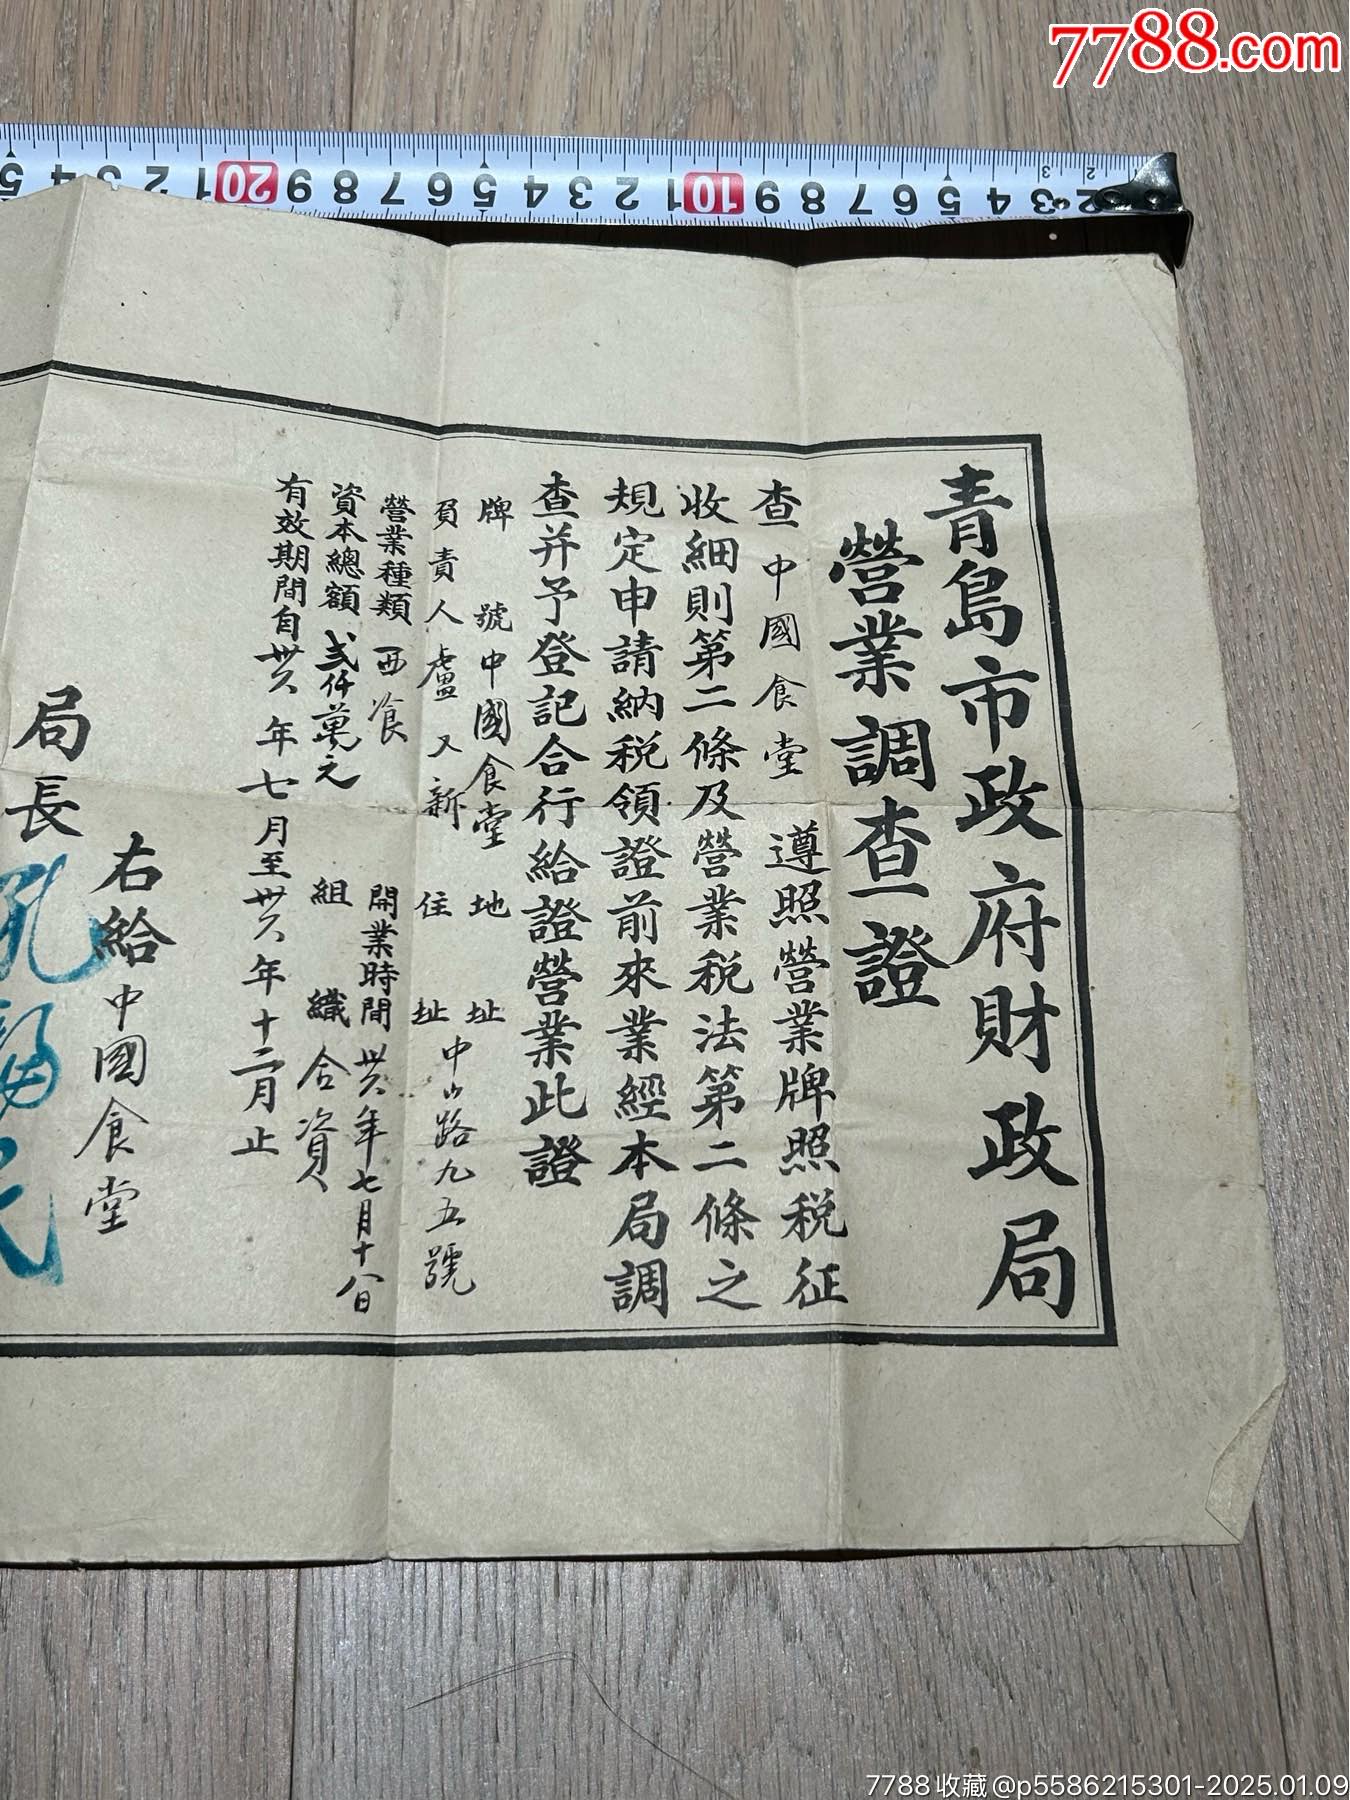 7788.com
5 4 3 2 1 20 9 8 7 6 5 4 3 2 1 10 9 8 7 6 5 4 3 2
青島市政府財政局
營業調查證
查中國食堂 遵照營業牌照税征
收細則第二條及營業税法第二條之
規定申請納税領證前來業經本局調
查并予登記合行給證營業此證
牌號中國食堂 地址中山路九五號
負責人盧又新 住址
營業種類西飡 開業時間卅六年七月十八日
資本總額弍仟萬元 組織合資
有效期間自卅六年七月至卅六年十二月止
右給中國食堂
局長
7788收藏@p5586215301-2025.01.09